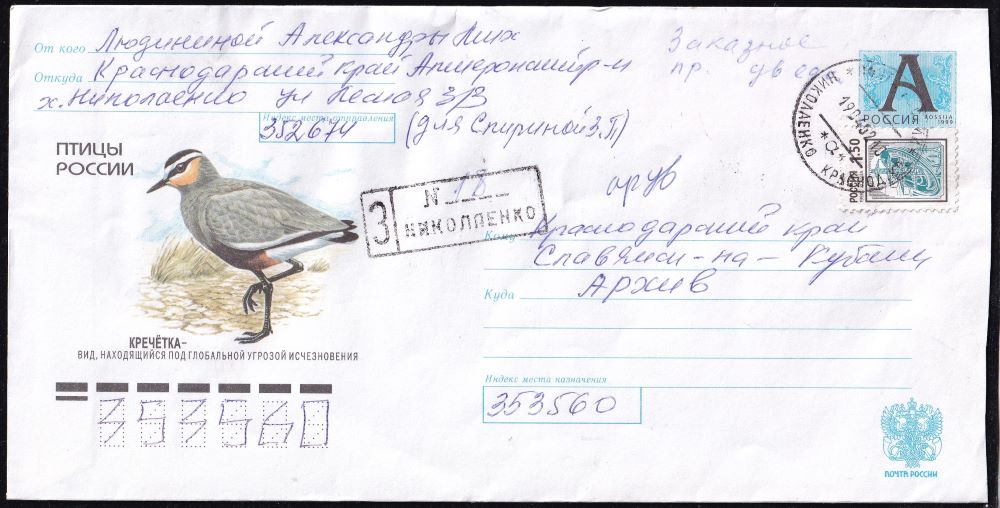 От кого Людининой Александры Ник
Откуда Краснодарский край Апшеронский р-н
х. Николаенко ул Лесная
Индекс места отправления
352674 (для Спириной З.П)
Заказное
пр.
А
РОССИЯ ROSSIJA 1999
НИКОЛАЕНКО
РОССИЯ 1.50
ПТИЦЫ
РОССИИ
З N 18
НИКОЛАЕНКО
Кому Краснодарский край
Славянск-на-Кубани
Куда Архив
КРЕЧЁТКА-
ВИД, НАХОДЯЩИЙСЯ ПОД ГЛОБАЛЬНОЙ УГРОЗОЙ ИСЧЕЗНОВЕНИЯ
Индекс места назначения
353560
353560
ПОЧТА РОССИИ